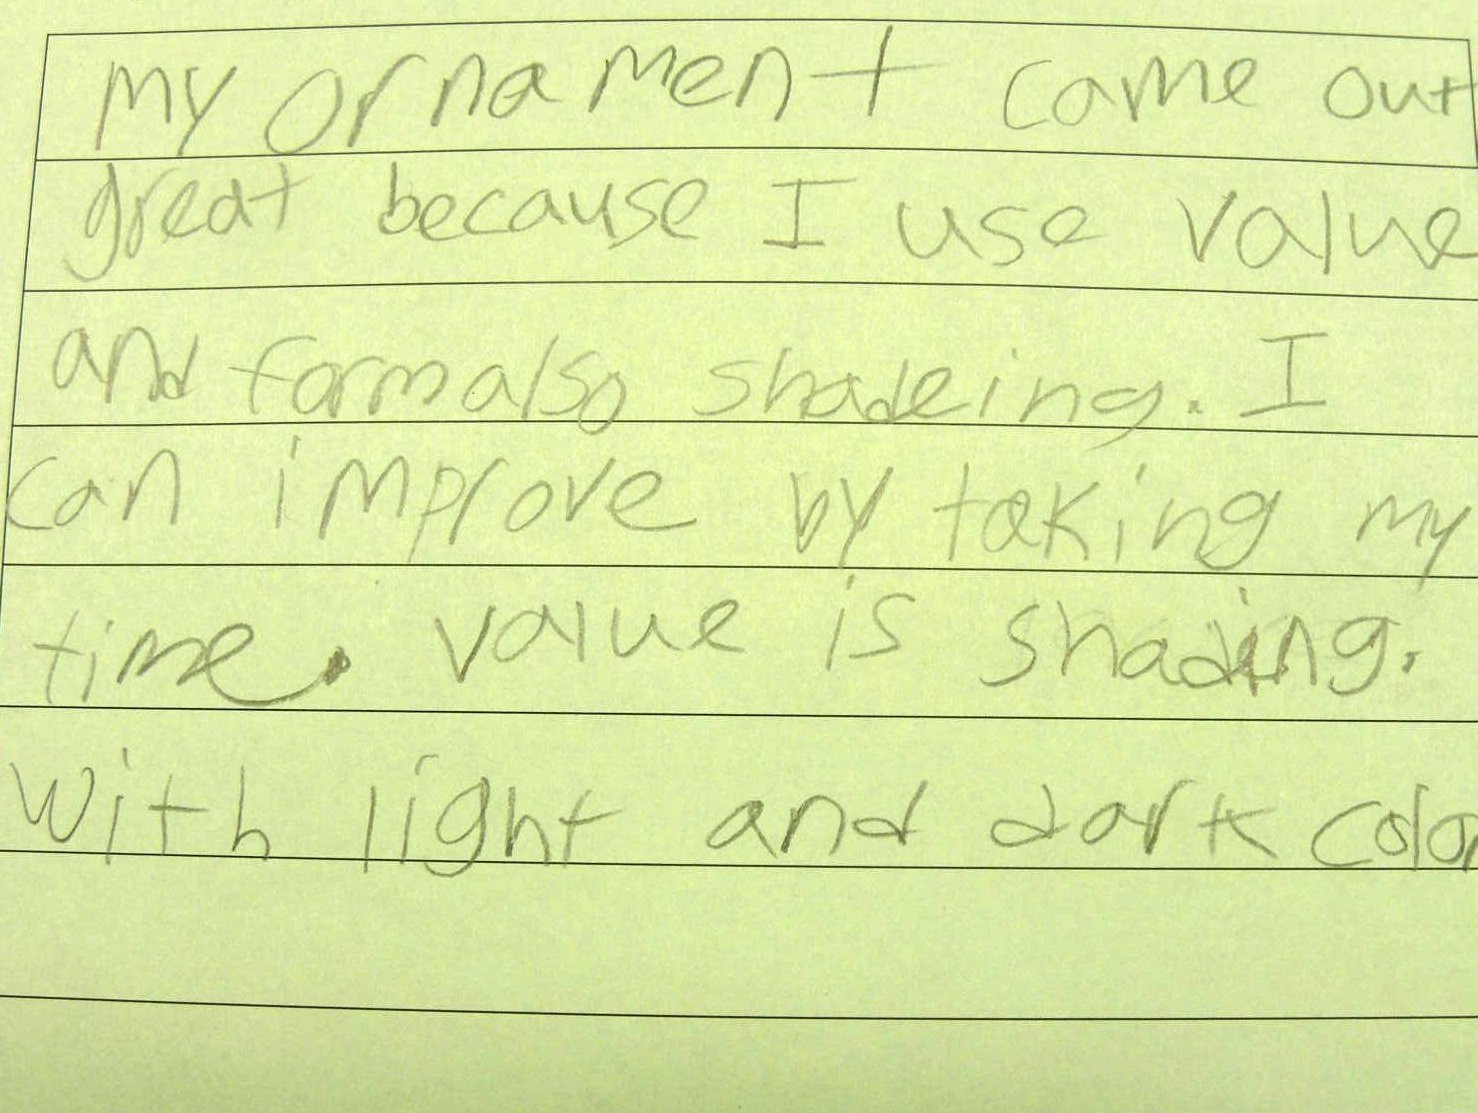 My ornament came out
great because I use value
and form also shadeing. I
can improve by taking my
time. value is shading.
with light and dark color